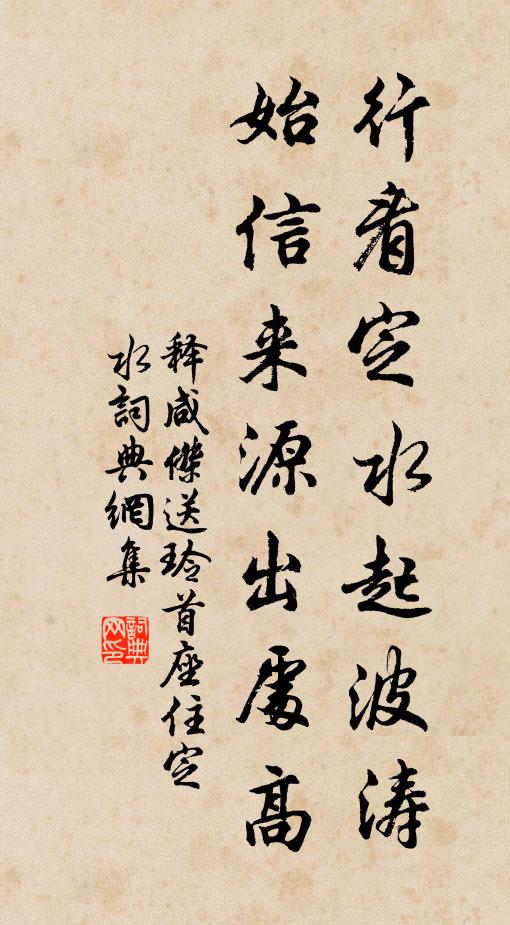 行看定水起波涛
始信来源出處高
释咸傑送玲首座住定
水詞典網集
詞典
网印